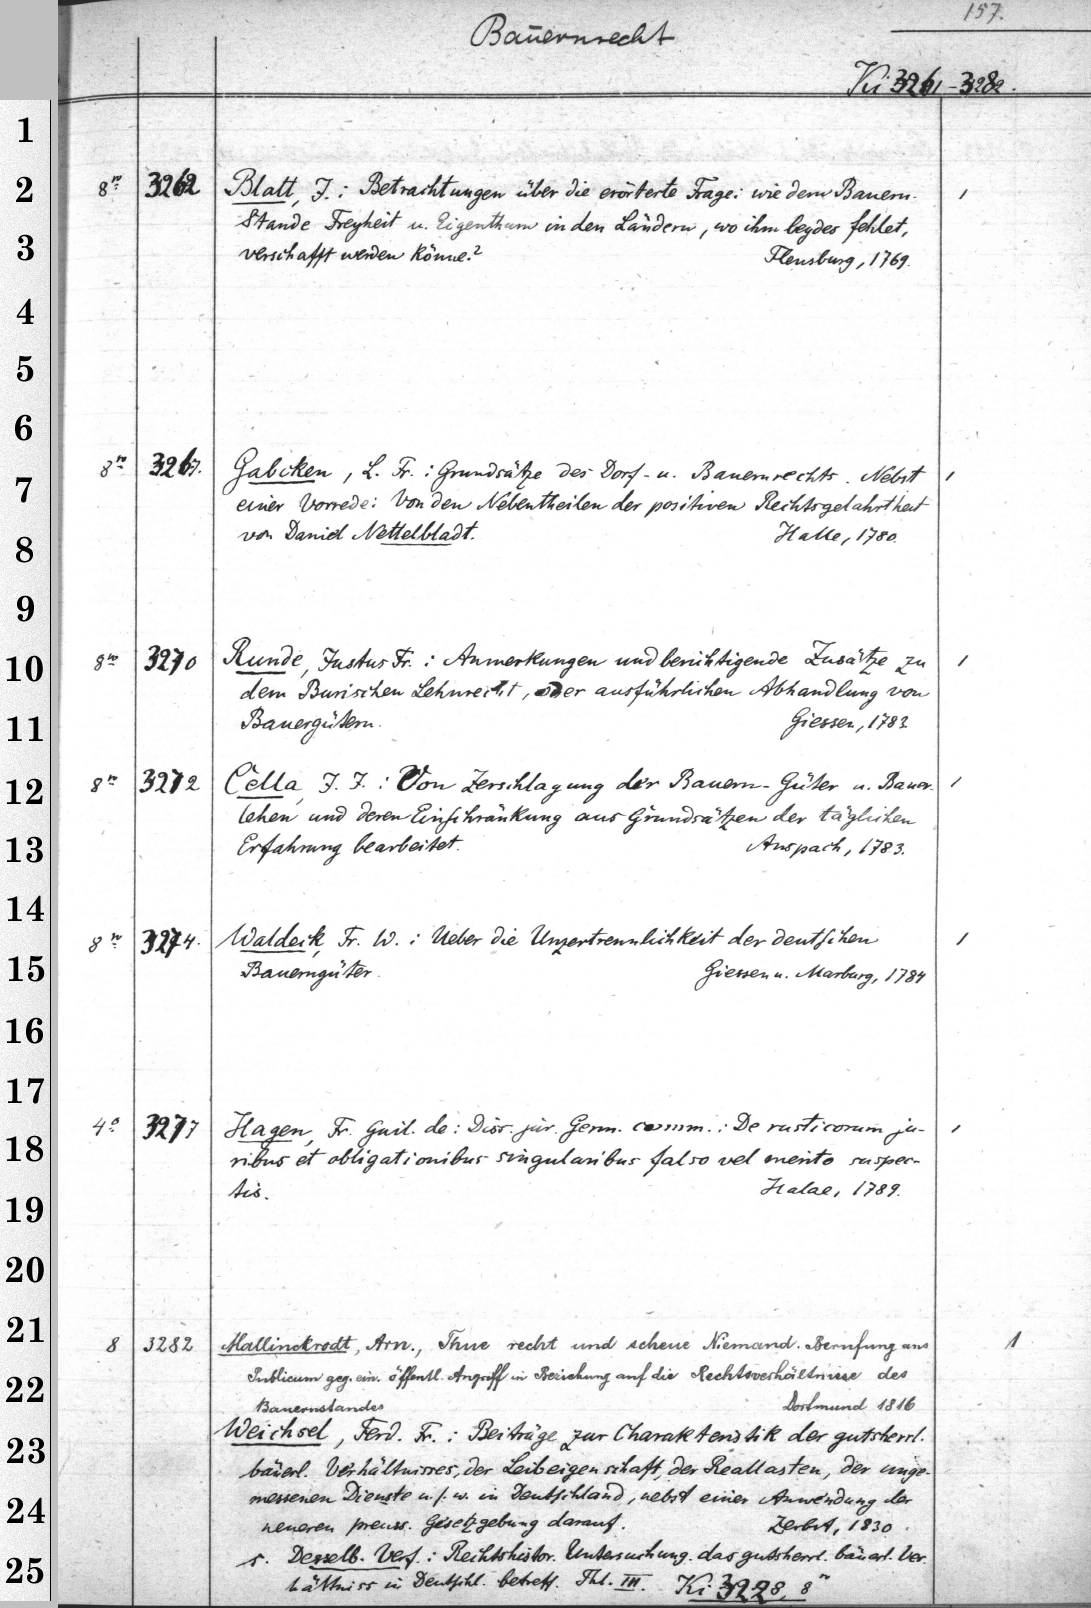 157.
Bauernrecht
Ki 3261-3282.
1
2
3
4
5
6
7
8
9
10
11
12
13
14
15
16
17
18
19
20
21
22
23
24
25
8º 3262 Blatt, J.: Betrachtungen über die erörterte Frage: wie dem Bauern- 1
Stande Freyheit u. Eigenthum in den Ländern, wo ihm beydes fehlet,
verschafft werden könne? Flensburg, 1769.
8º 3267. Gabcken, L. Fr.: Grundsätze des Dorf- u. Bauernrechts. Nebst 1
einer Vorrede: Von den Nebentheilen der positiven Rechtsgelahrtheit
von Daniel Nettelbladt. Halle, 1780.
8º 3270 Runde, Justus Fr.: Anmerkungen und berichtigende Zusätze zu 1
dem Burischen Lehnrecht, oder ausführlichen Abhandlung von
Bauergütern. Giessen, 1783
8º 3272 Cella, J. J.: Von Zerschlagung der Bauern-Güter u. Bauer- 1
lehen und deren Einschränkung aus Grundsätzen der täglichen
Erfahrung bearbeitet. Anspach, 1783.
8º 3274. Waldeck, Fr. W.: Ueber die Unzertrennlichkeit der deutschen 1
Bauerngüter. Giessen u. Marburg, 1784
4º 3277 Hagen, Fr. Guil. de: Diss. jur. Germ. comm.: De rusticorum ju- 1
ribus et obligationibus singularibus falso vel merito suspec-
tis. Halae, 1789.
8 3282 Mallinckrodt, Arn., Thue recht und scheue Niemand. Berufung ans 1
Publicum geg. ein. öffentl. Angriff in Beziehung auf die Rechtsverhältnisse des
Bauernstandes Dortmund 1816
Weichsel, Ferd. Fr.: Beiträge zur Charakteristik der gutsherrl.
bäuerl. Verhältnisses, der Leibeigenschaft, der Reallasten, der unge-
messenen Dienste u. s. w. in Deutschland, nebst einer Anwendung der
neueren preuss. Gesetzgebung darauf. Zerbst, 1830.
s. Desselb. Verf.: Rechtshistor. Untersuchung. das gutsherrl. bäuerl. Ver-
hältniss in Deutschl. betreff. Thl. III. Ki 3228, 8º